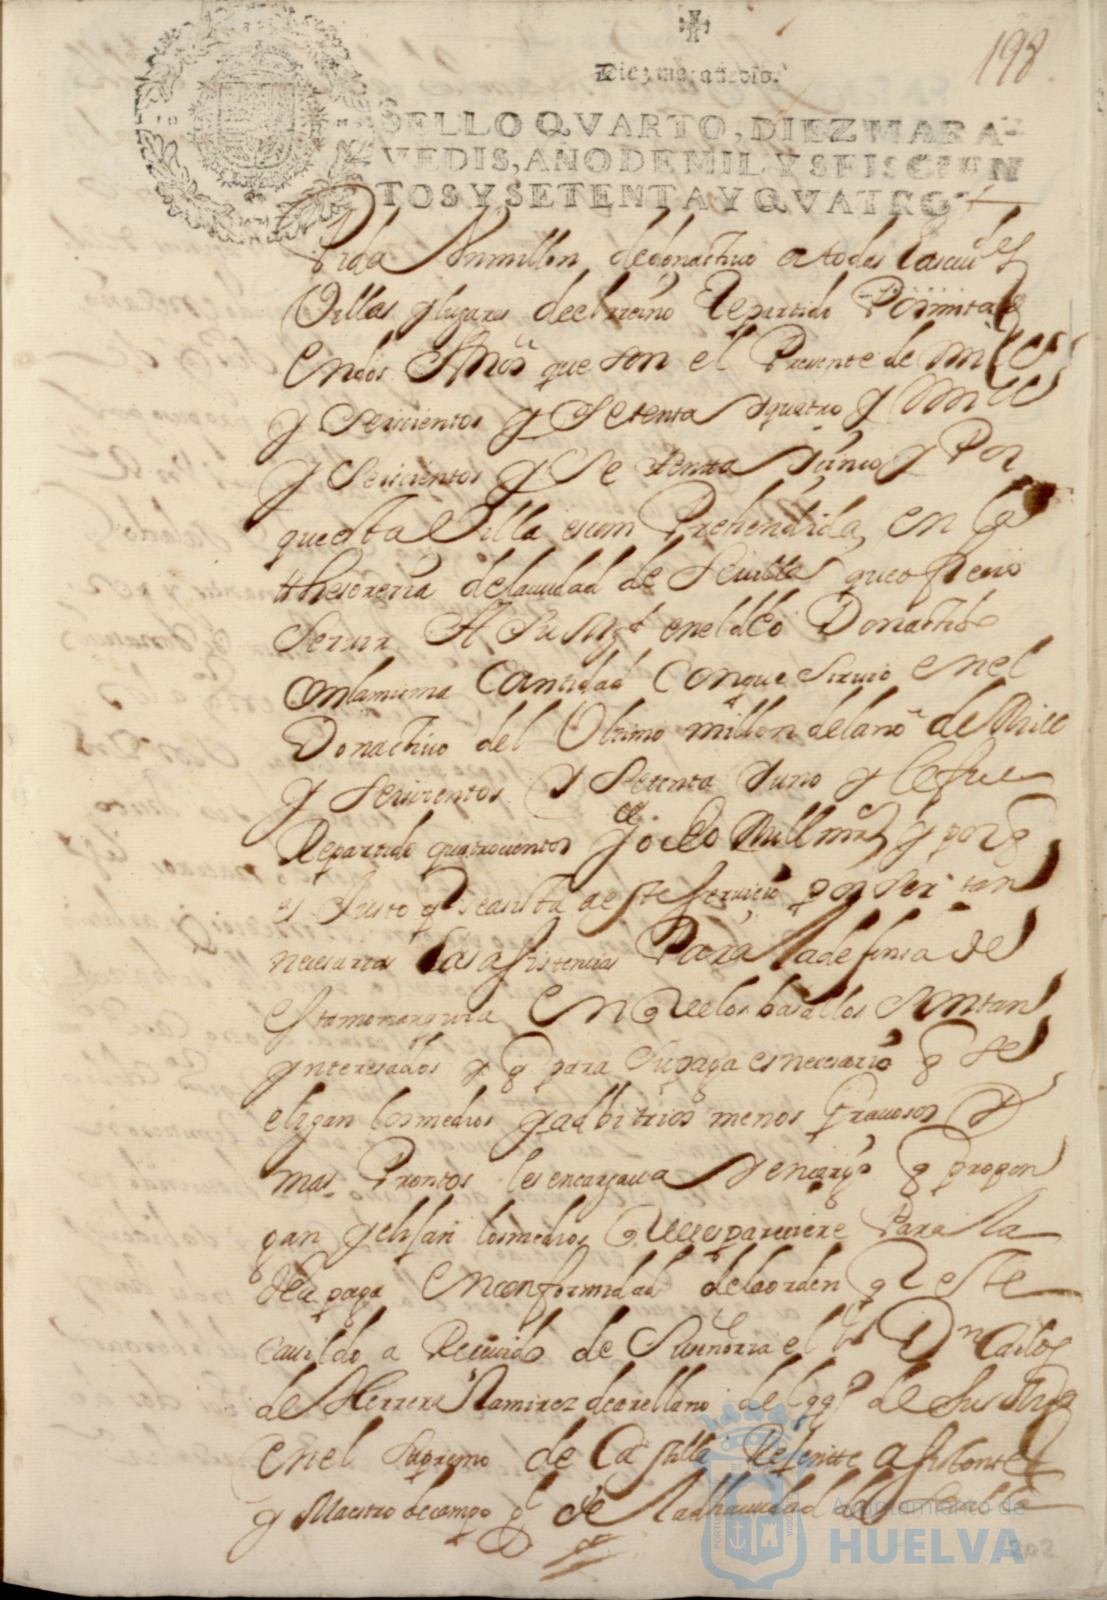 198
Diez marauedis.
SELLO QVARTO, DIEZ MARA-
VEDIS, AÑO DE MIL Y SEISCIEN
TOS Y SETENTA Y QVATRO
Pida Unmillon dedonactiuo a todas lasciudes
Villas y lugares deelrreino Repartido Pormitad
Endos Años que son el Presente de mill
y Seiscientos y Setenta yquatro y mill
y Seiscientos y Setenta ycinco y Por
questa Villa escom Prehendida, en la
thesoreria delaciudad de Seuilla que ofrecio
Seruir A Su Mgd enel dho Donactibo
Conlamisma Cantidad Conque Siruio enel
Donactiuo del Ultimo millon delano de Mill
y Seiscientos y Setenta yuno y lefue
Repartido quatrocientos y ocho mill mrs y por q
es Justo q deste seruicio por ser tan
necesarias las asistencias Para ladefensa de
estamonarquia En Quelos basallos Sontan
ynteresados y q para Supaga es necesario q se
eligan losmedios yadbitrios menos grauosos y
mas Prontos les encargaua yencargo q propon
gan yelijan losmedios Queles pareciere Para la
dha paga Enconformidad delaorden q este
cauildo a Reciuido de Suseñoria el Sr Dn Carlos
de Herrera Ramirez dearellano del de Su Mgd
enel Supremo de Castilla asistente
y Maestro decampo gl de la dha ciudad de Seuilla
Ayuntamiento de
HUELVA
202